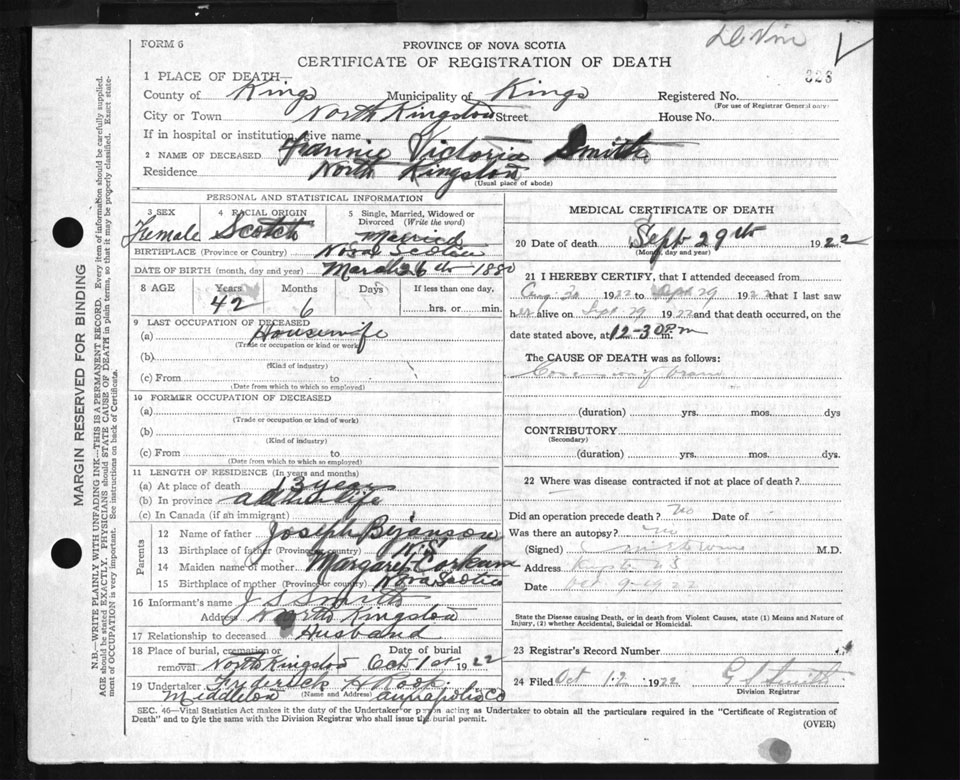 FORM 6
PROVINCE OF NOVA SCOTIA
CERTIFICATE OF REGISTRATION OF DEATH
323
1 PLACE OF DEATH—
County of Kings Municipality of Kings Registered No.
(For use of Registrar General only)
City or Town North Kingston Street House No.
If in hospital or institution, give name
2 NAME OF DECEASED Fannie Victoria Smith
Residence North Kingston
(Usual place of abode)
PERSONAL AND STATISTICAL INFORMATION
3 SEX 4 RACIAL ORIGIN 5 Single, Married, Widowed or Divorced (Write the word)
Female Scotch Married
BIRTHPLACE (Province or Country) Nova Scotia
DATE OF BIRTH (month, day and year) March 26th 1880
8 AGE Years Months Days If less than one day,
42 6 hrs. or min.
9 LAST OCCUPATION OF DECEASED
(a) Housewife
(Trade or occupation or kind or work)
(b)
(Kind of industry)
(c) From to
(Date from which to which so employed)
10 FORMER OCCUPATION OF DECEASED
(a)
(Trade or occupation or kind of work)
(b)
(Kind of industry)
(c) From to
(Date from which to which so employed)
11 LENGTH OF RESIDENCE (In years and months)
(a) At place of death 13 years
(b) In province all her life
(c) In Canada (if an immigrant)
Parents
12 Name of father Joseph Bezanson
13 Birthplace of father (Province or country) N.S.
14 Maiden name of mother Margaret Corkum
15 Birthplace of mother (Province or country) Nova Scotia
16 Informant's name J S Smith
Address North Kingston
17 Relationship to deceased Husband
18 Place of burial, cremation or removal North Kingston Date of burial Oct 1st 1922
19 Undertaker Frederick H Roop
Middleton (Name and Address) Annapolis Co
MEDICAL CERTIFICATE OF DEATH
20 Date of death Sept 29th 1922
(Month, day and year)
21 I HEREBY CERTIFY, that I attended deceased from
Aug 30 1922 to Sept 29 1922 that I last saw
her alive on Sept 29 1922 and that death occurred, on the
date stated above, at 12-30 P.m.
The CAUSE OF DEATH was as follows:
(duration) yrs. mos. dys
CONTRIBUTORY
(Secondary)
(duration) yrs. mos. dys.
22 Where was disease contracted if not at place of death?
Did an operation precede death? no Date of
Was there an autopsy? no
(Signed) M.D.
Address Kingston NS
Date Oct 9-1922
State the Disease causing Death, or in death from Violent Causes, state (1) Means and Nature of Injury, (2) whether Accidental, Suicidal or Homicidal.
23 Registrar's Record Number
24 Filed Oct 12 1922 G S Smith
Division Registrar
SEC. 46—Vital Statistics Act makes it the duty of the Undertaker or person acting as Undertaker to obtain all the particulars required in the "Certificate of Registration of
Death" and to fyle the same with the Division Registrar who shall issue the burial permit.
(OVER)
MARGIN RESERVED FOR BINDING
N.B.—WRITE PLAINLY WITH UNFADING INK—THIS IS A PERMANENT RECORD. Every item of information should be carefully supplied.
AGE should be stated EXACTLY. PHYSICIANS should STATE CAUSE OF DEATH in plain terms, so that it may be properly classified. Exact statement of OCCUPATION is very important. See instructions on back of Certificate.